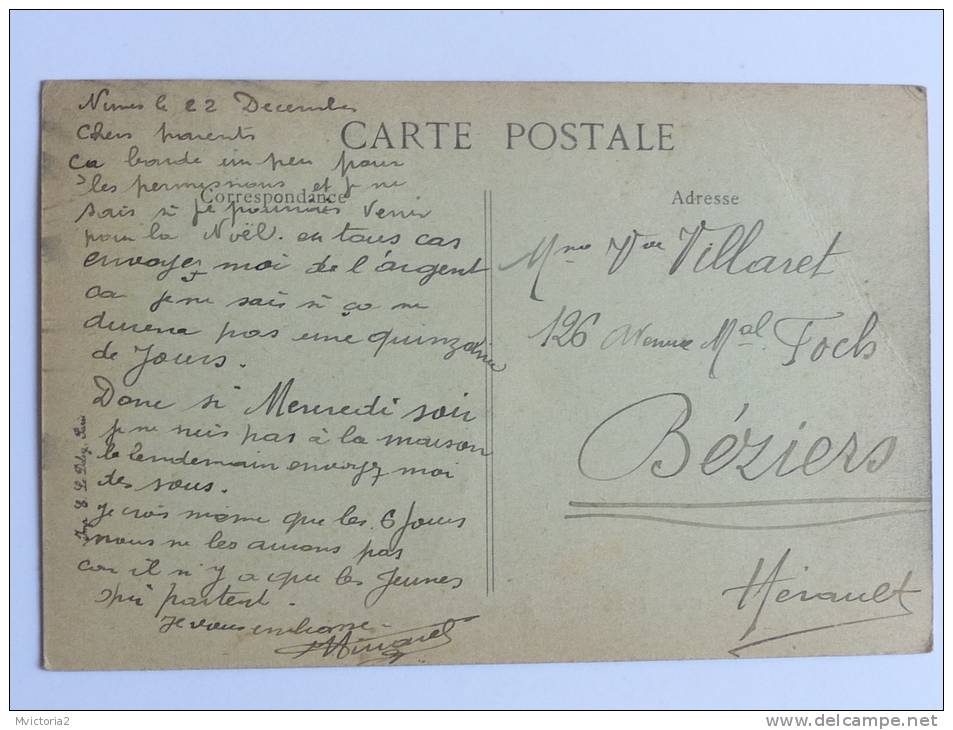 Nimes le 22 Decembre
Chers parents
CARTE POSTALE
Ca boude un peu pour
les permissions et je ne
Correspondance
sais si je pourrais venir
pour la Noël. en tous cas
envoyez moi de l'argent
ca je ne sais si ça ne
durera pas une quinzaine
de Jours.
Donc si Mercredi soir
je ne suis pas à la maison
le lendemain envoyez moi
des sous.
je crois même que les 6 Jours
nous ne les aurons pas
car il n'y a que les Jeunes
qui partent.
Je vous embrasse
Imp. E. Le Deley, Paris
Adresse
Mme Vve Villaret
126 Avenue Mal. Foch
Béziers
Hérault
Mvictoria2
www.delcampe.net